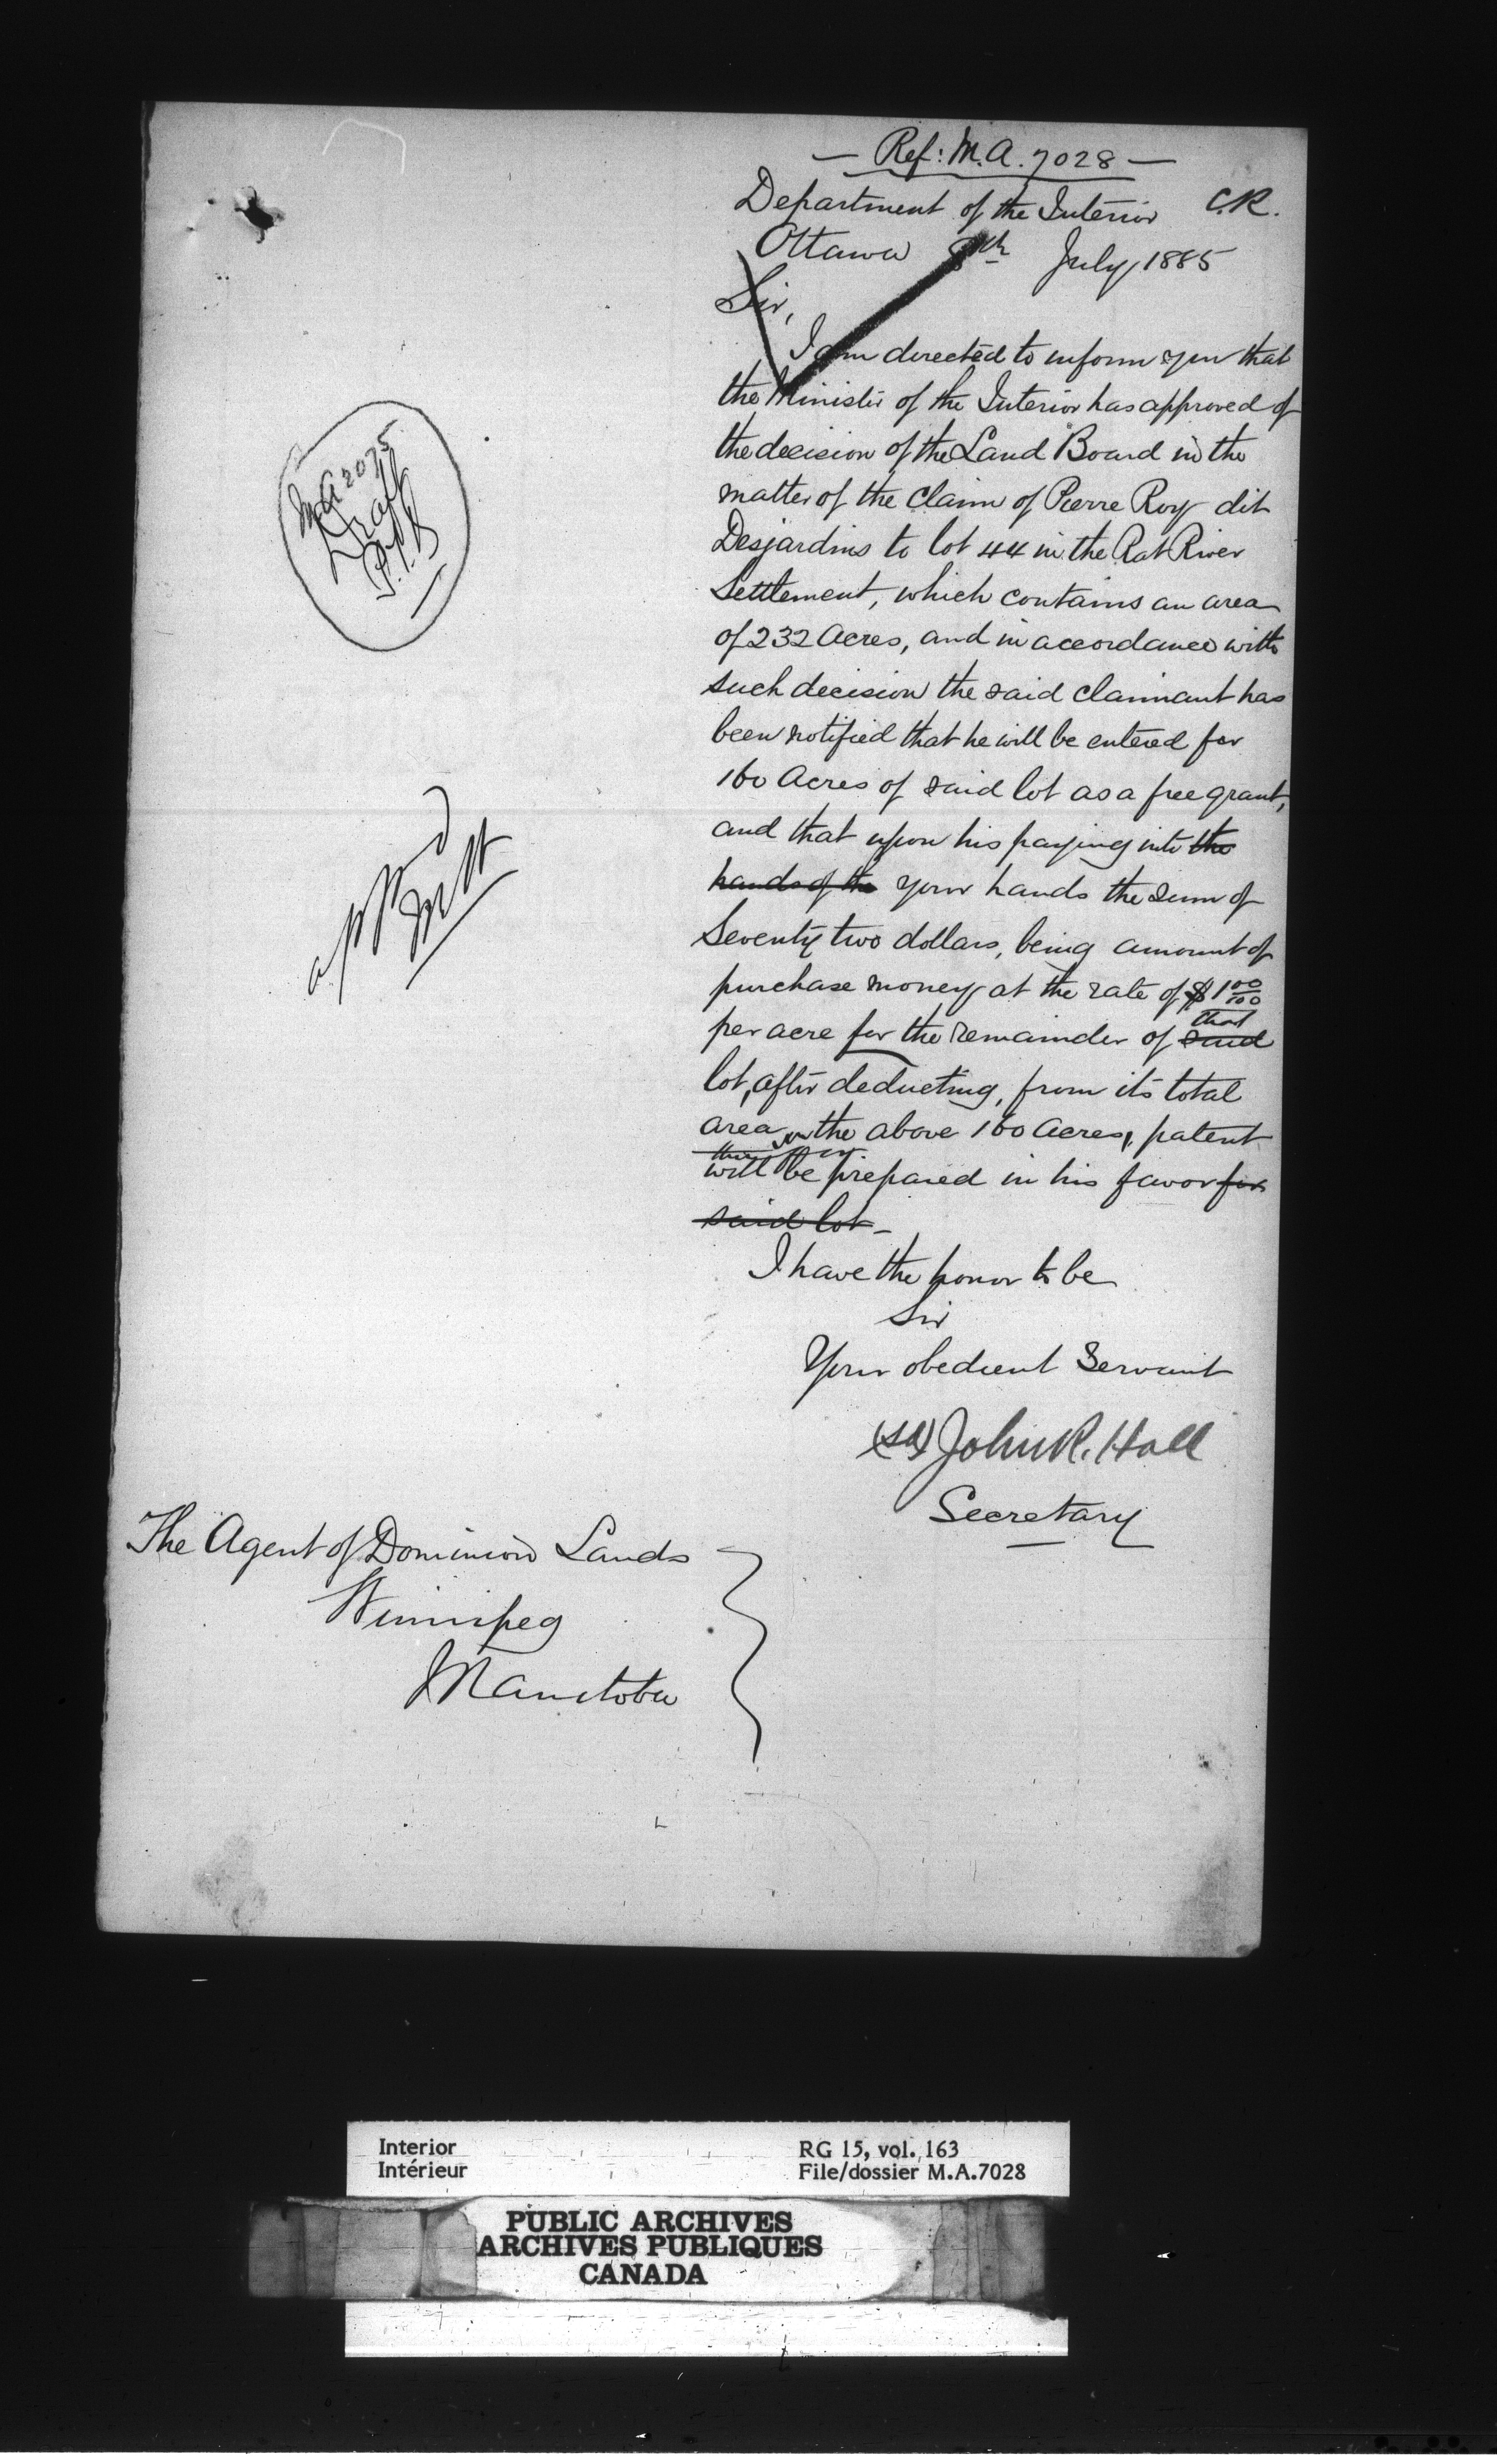 — Ref: M.A. 7028 —
Department of the Interior C.R.
Ottawa 8th July, 1885
Sir,
I am directed to inform you that
the Minister of the Interior has approved of
the decision of the Land Board in the
matter of the claim of Pierre Roy dit
Desjardins to lot 44 in the Rat River
Settlement, which contains an area
of 232 Acres, and in accordance with
such decision the said claimant has
been notified that he will be entered for
160 Acres of said lot as a free grant,
and that upon his paying into the
hands of the your hands the sum of
Seventy two dollars, being amount of
purchase money at the rate of $1 00/100
per acre for the remainder of said
that
lot, after deducting, from its total
area, the above 160 Acres, patent
will be prepared in his favor for
said lot –
I have the honor to be
Sir
Your obedient Servant
(sd) John R. Hall
Secretary
MA 2075
Draft
The Agent of Dominion Lands
Winnipeg
Manitoba
Interior
Intérieur
RG 15, vol. 163
File/dossier M.A.7028
PUBLIC ARCHIVES
ARCHIVES PUBLIQUES
CANADA